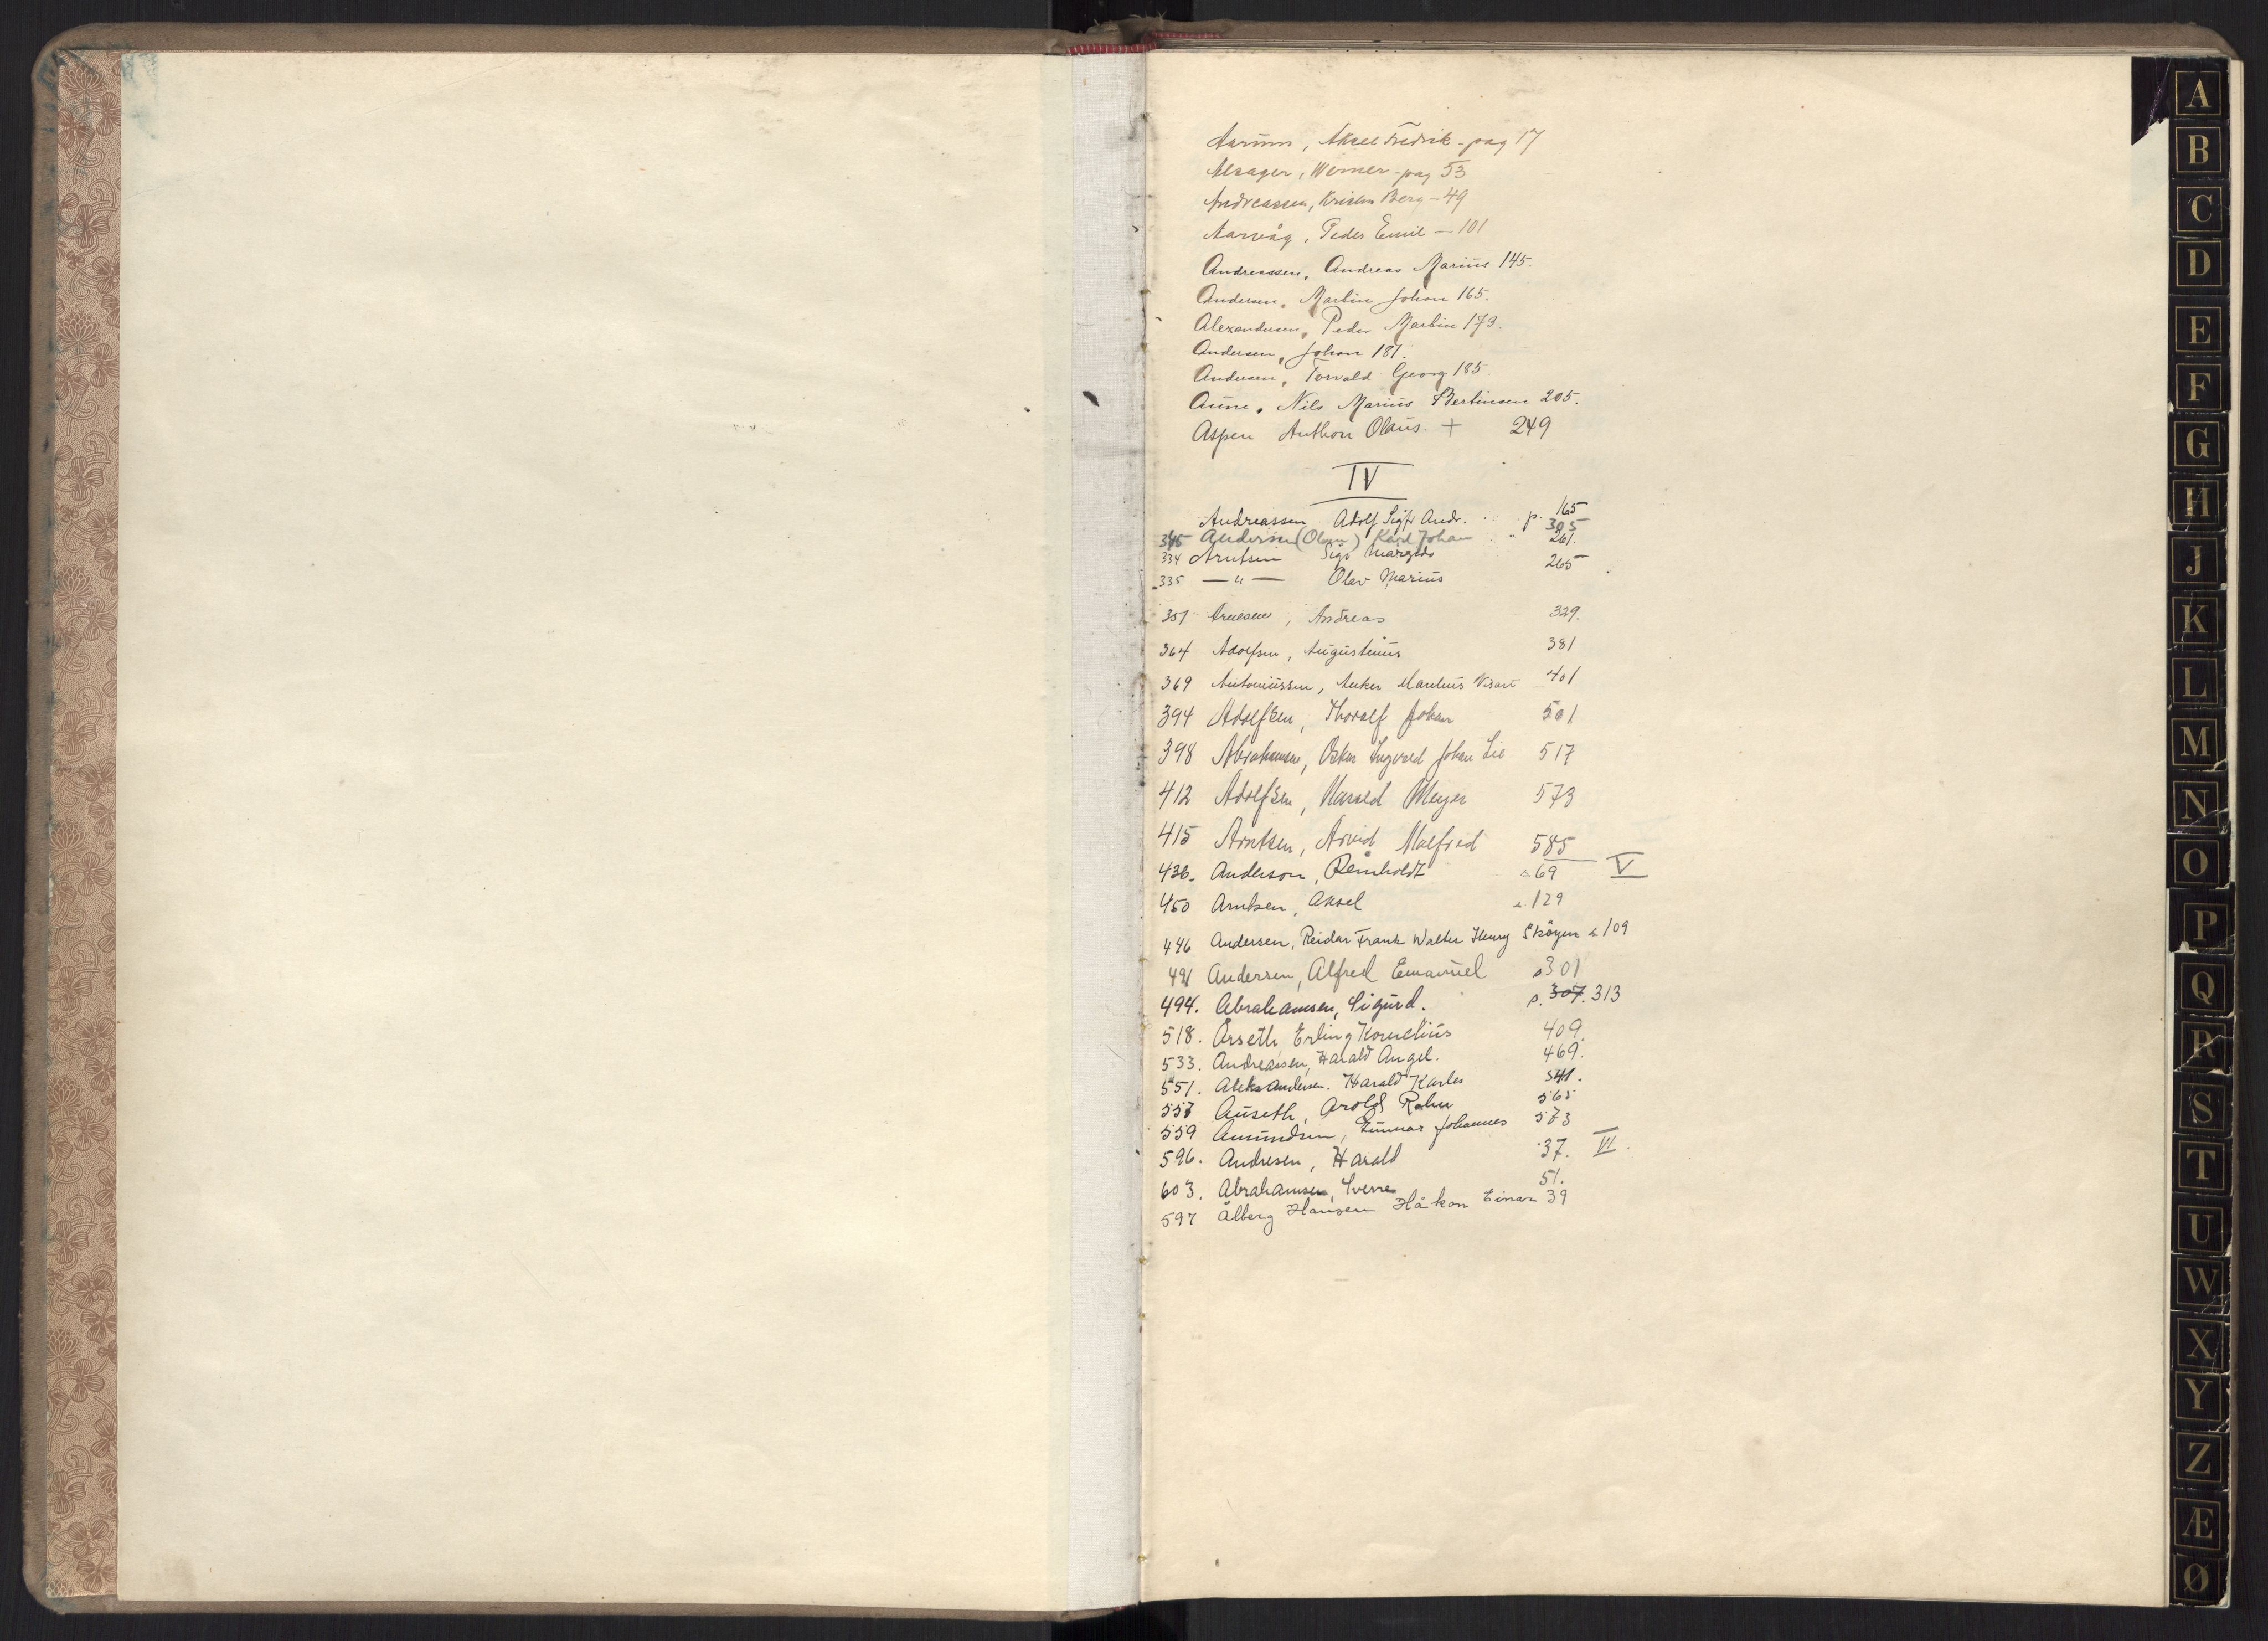 Aarum, Aksel Fredrik - pag 17
Alsager, Werner - pag 53
Andreassen, Kristen Berg - 49
Aarvåg, Peder Emil - 101
Andreassen, Andreas Marius 145.
Andersen, Martin Johan 165.
Alexandersen, Peder Martin 173.
Andersen, Johan 181.
Andersen, Torvald Georg 185.
Aune, Nils Marius Bertinsen 205.
Aspen Anthon Olaus. + 249
IV
Andreassen Adolf Sigfr. Andr. p. 165
345 Andersen (Olsen) Karl Johan " 305
334 Arntsen Sigv Margido 261.
335 — " — Olav Marius 265
351 Arnesen, Andreas 329.
364 Adolfsen, Augustinus 381
369 Antoniussen, Anker Marelius 401
394 Adolfsen, Thoralf Johan 501
398 Abrahamsen, Oskar Ingvald Johan Lie 517
412 Adolfsen, Harald Meyer 573
415 Arntsen, Arvid Malfred 585
436. Anderson, Reinholdt s 69 V
450 Arntsen, Aksel s. 129
446 Andersen, Reidar Frank Walter Henry Skøyen s 109
491 Andersen, Alfred Emanuel s 301
494. Abrahamsen, Sigurd. s. 307. 313
518. Årseth, Erling Kornelius 409.
533. Andreassen, Harald Angel. 469.
551. Aleksandersen. Harald Karles 541.
557 Auseth, Arold Rahn 565
559 Amundsen, Gunnar Johannes 573
596. Andresen, Harald 37. VI.
603. Abrahamsen, Sverre 51.
597 Ålberg Hansen Håkon Einar 39
A
B
C
D
E
F
G
H
J
K
L
M
N
O
P
Q
R
S
T
U
W
X
Y
Z
Æ
Ø